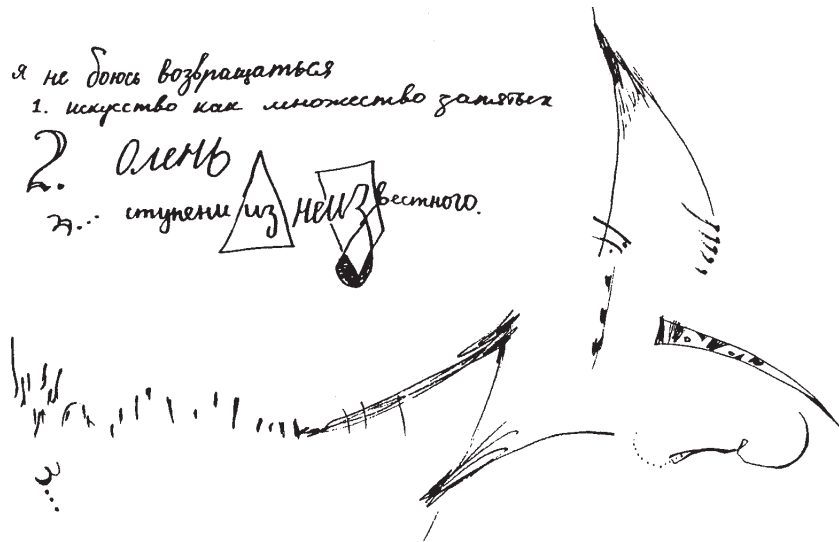 я не боюсь возвращаться
1. искусство как множество запятых
2. олень
3... ступени из неизвестного.
3...